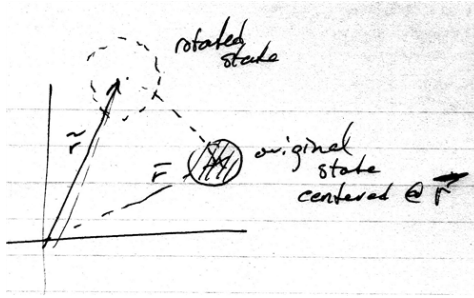 rotated
state
r̃
r̄
original
state
centered @ r⃗